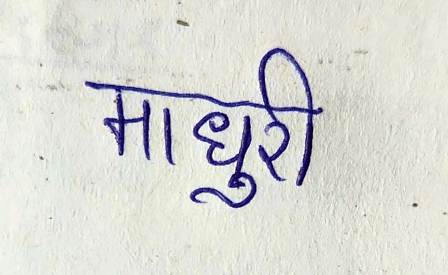 माधुरी